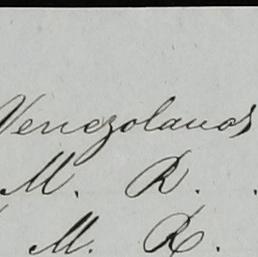 Venezolanos
M. R.
M. R.